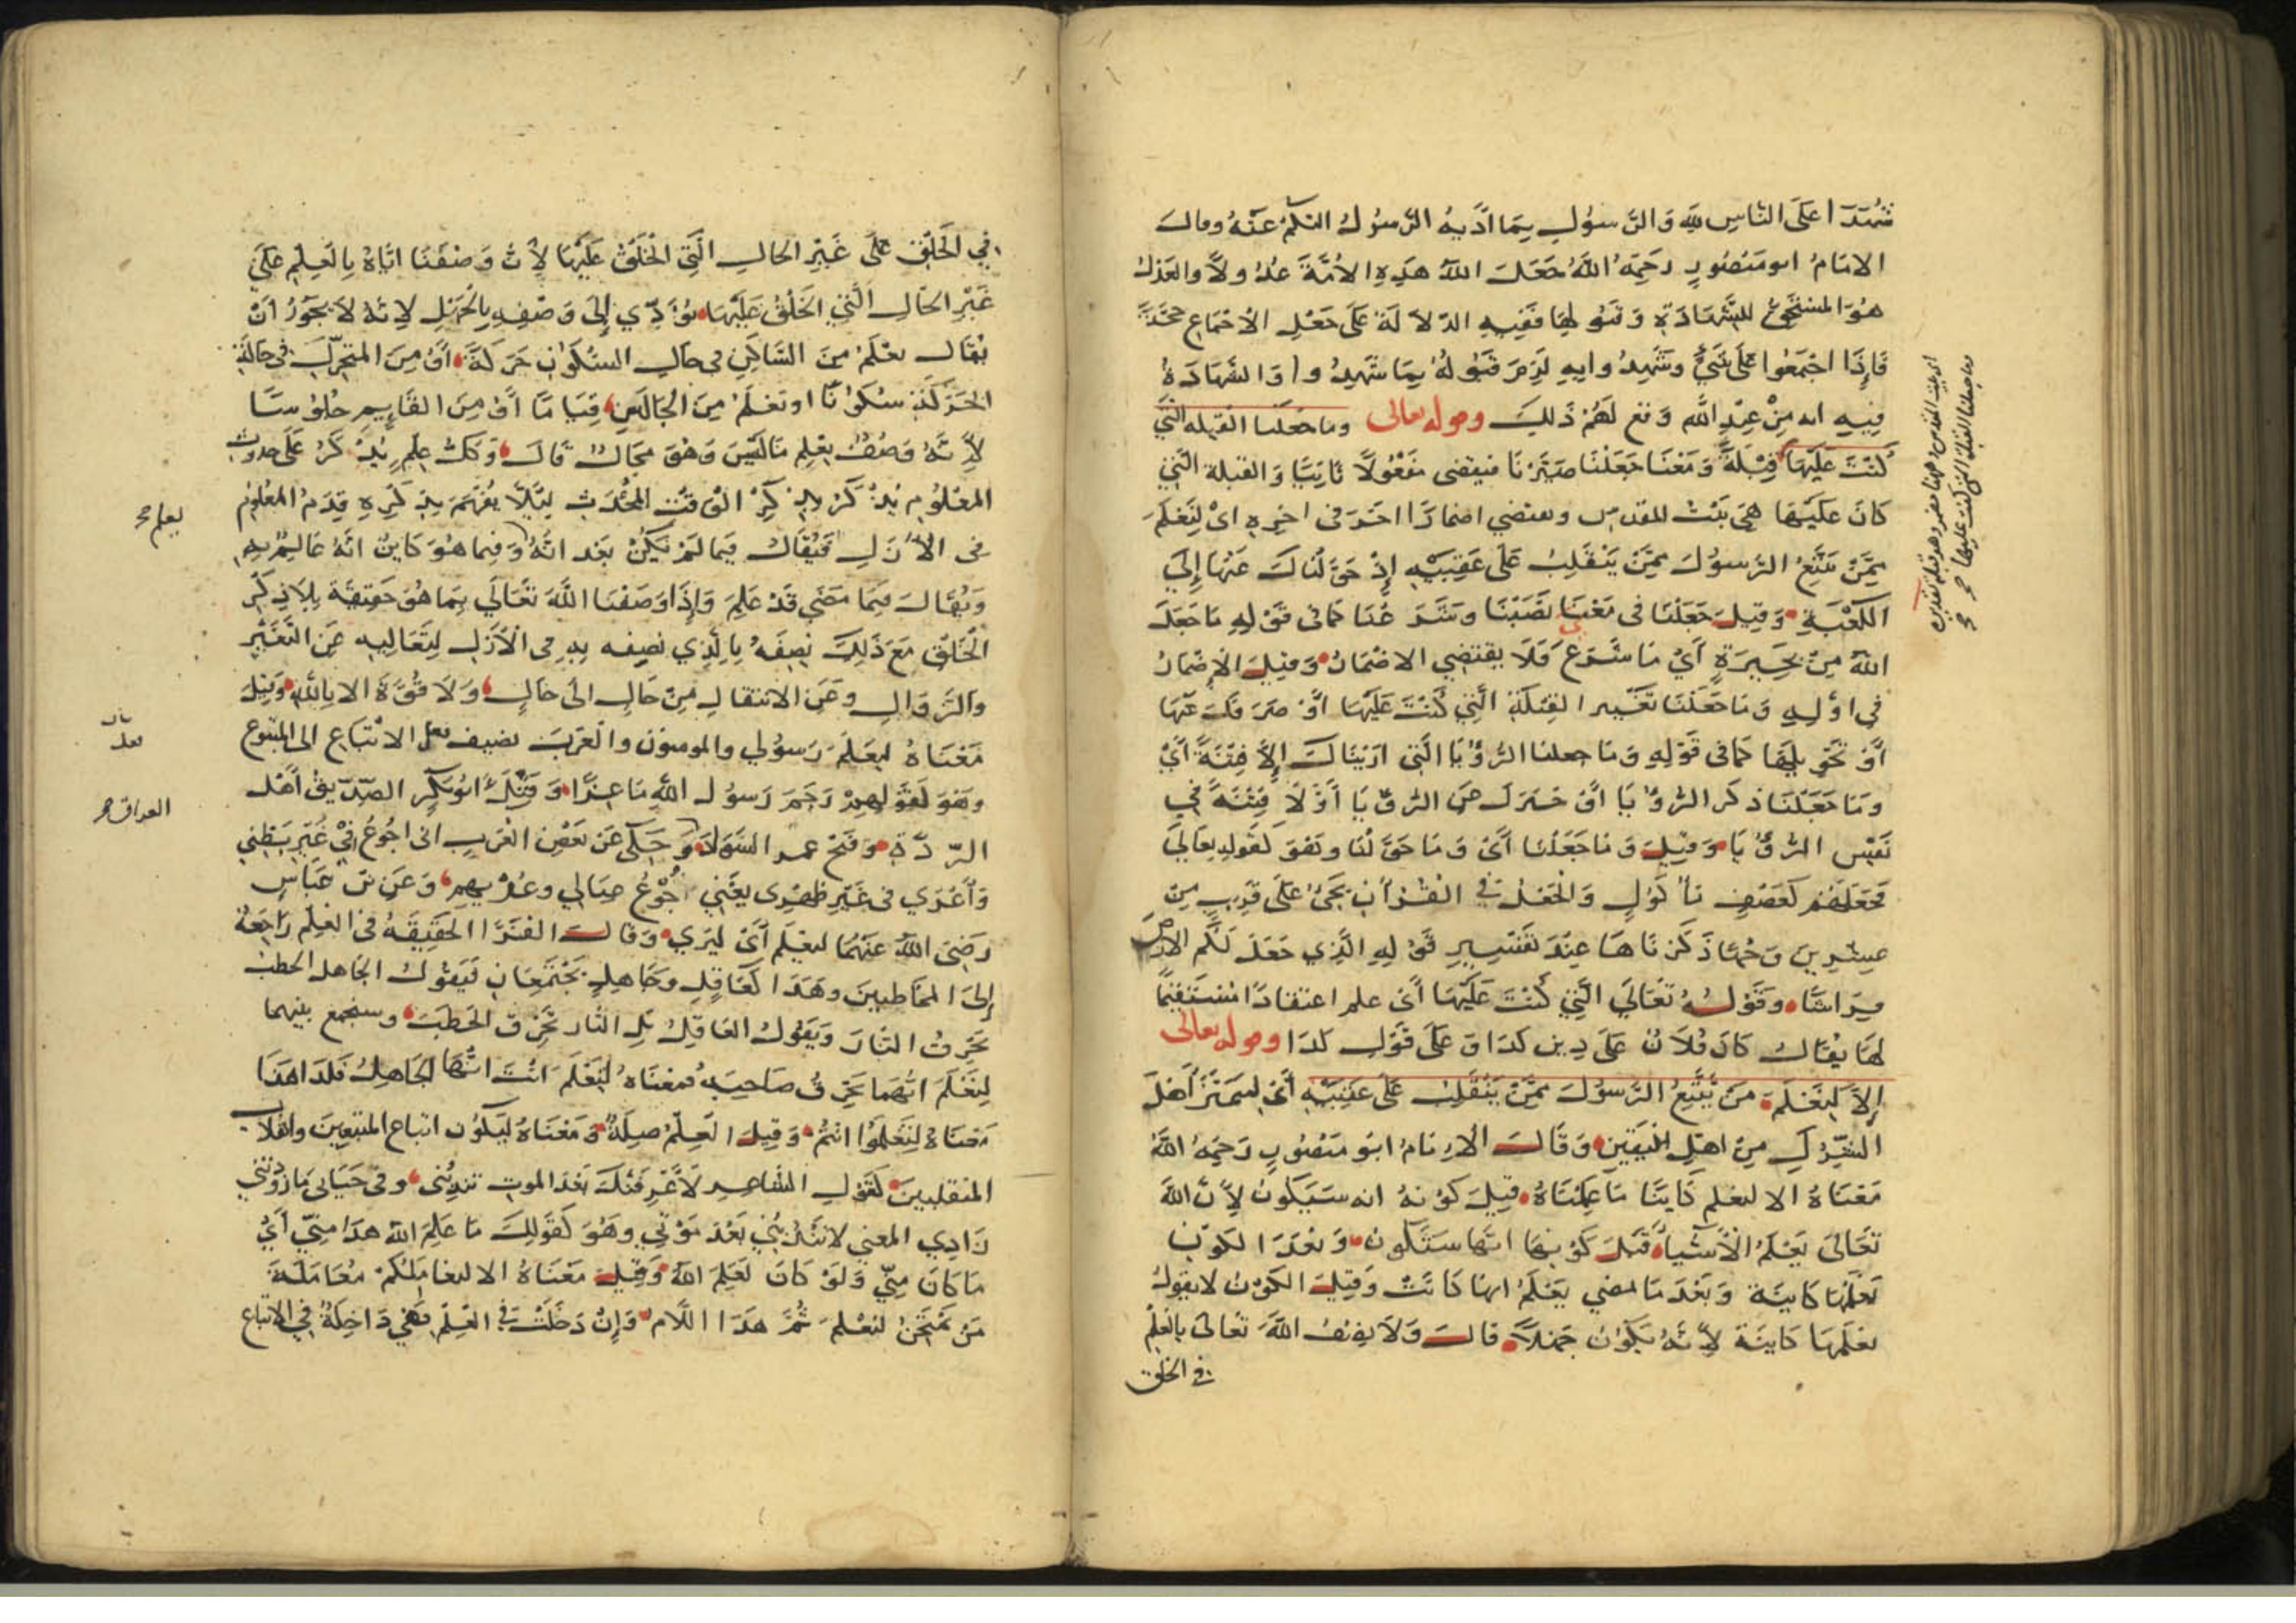 شهدا على الناس لله والرسول بما اديه الرسول اليكم عنه وقال
الامام ابو منصور رحمه الله جعل الله هذه الامة عدولا والعدل
هو المستحق للشهادة وقبولها ففيه الدلالة على جعل الاجماع حجة
فاذا اجتمعوا على شيء وشهدوا به لزم قبوله بما شهدوا والشهادة
فيه انه من عند الله وقع لهم ذلك وقوله تعالى وما جعلنا القبلة التي
كنت عليها قبلة ومعنا جعلنا صيرنا فيقتضى مفعولا ثانيا والقبلة التي
كان عليها هي بيت المقدس ويقتضي اضمارا اخر في اخره اي لنعلم
من يتبع الرسول ممن ينقلب على عقبيه اذ حولناك عنها إلى
الكعبة وقيل جعلنا في معنى نصبنا وشرعنا كما في قوله ما جعل
الله من بحيرة أي ما شرع فلا يقتضي الاضمار وقيل الاضمار
في اوله وما جعلنا تغيير القبلة التي كنت عليها أو صرفك عنها
أو تحويلها كما في قوله وما جعلنا الرؤيا التي اريناك إلا فتنة أي
وما جعلنا ذكر الرؤيا او خبرك عن الرؤيا أولا فتنة في
نفس الرؤيا وقيل وما جعلنا أي وما حولنا وهو كقوله تعالى
فجعلهم كعصف مأكول والجعل في القرآن يجيء على قريب من
عشرين وجها ذكرناها عند تفسير قوله الذي جعل لكم الارض
فراشا وقوله تعالى التي كنت عليها أي على اعتقادا مستقيما
لها يقال كان فلان على دين كذا وعلى قول كذا وقوله تعالى
إلا لنعلم من يتبع الرسول ممن ينقلب على عقبيه أي ليتميز أهل
الشرك من اهل اليقين وقالت الامام ابو منصور رحمه الله
معناه الا لنعلم كائنا ما علمناه قبل كونه انه سيكون لأن الله
تعالى يعلم الأشياء قبل كونها انها ستكون وبعد الكون
يعلمها كائنة وبعد ما مضي يعلم انها كانت وقبل الكون لا يقول
يعلمها كائنة لأنه يكون جهلا قال ولا يوصف الله تعالى بالعلم
في الخلق
وما جعلنا القبلة التي كنت عليها
في الخلق على غير الحال التي الخلق عليها لأن وصفنا اياه بالعلم على
غير الحال التي الخلق عليها يؤدي إلى وصفه بالجهل لانه لا يجوز ان
يقال يعلم من الساكن في حال السكون حركة أو من المتحرك في حالة
الحركة سكونا او تعلم من الجالس قياما أو من القايم جلوسا
لأنه وصف بعلم ما ليس وهو محال قال وكل علم يذكر على حدوث
المعلوم يذكر بذكر الوقت المحدث لئلا يفهم بذكره قدم المعلوم
في الأزل فيقال فيما لم يكن بعد انه وفيما هو كاين انه عالم به
ويقال فيما مضى قد علم وإذا وصفنا الله تعالي بما هو حقيقة بلا ذكر
الخلق مع ذلك نصفه بالذي نصفه به في الأزل لتعاليه عن التغير
والزوال وعن الانتقال من حال الى حال ولا قوة الا بالله وقيل
معناه ليعلم رسولي والمومنون والعرب تضيف فعل الاتباع الى المتبوع
وهو كقولهم رجم رسول الله ماعزا وقتل أبو بكر الصديق أهل
الردة وفتح عمر السواد وحكى عن بعض العرب اني اجوع في غير بطني
وأعرى في غير ظهري يعني جوع عيالي وعريهم وعن ابن عباس
رضى الله عنهما لنعلم أي ليرى وقال الفراء الحقيقة في العلم راجعة
إلى المخاطبين وهذا كعاقل وجاهل يجتمعان فيقول الجاهل الحطب
يحرق النار ويقول العاقل بل النار تحرق الحطب وسنجمع بينهما
لنعلم ايهما يحرق صاحبه فمعناه لتعلم انت ايها الجاهل فكذا هذا
معناه لتعلموا انتم وقيل العلم صلة ومعناه ليكون اتباع المتبعين وانقلاب
المنقلبين كقول الشاعر لأعرفنك بعد الموت تندبني وفي حياتي ما زودتني
زادي المعني لا تندبني بعد موتي وهو كقولك ما علم الله هذا مني أي
ما كان مني ولو كان لعلم الله وقيل معناه الا ليعاملكم معاملة
من يمتحن ليعلم ثم هذا اللام وإن دخلت في العلم فهي داخلة في الاتباع
ليعلم صح
العراق صح